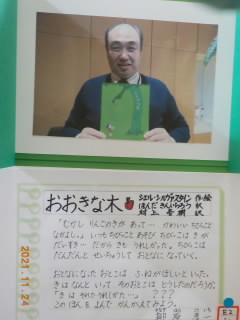 おおきな木
シェル・シルヴァスタイン 作・絵
ほんだ きんいちろう 訳
「むかし りんごのきが あって… かわいい ちびっこと
なかよし。 いつも ちびっこと あそび ちびっこは きが
だいすき… だから きも うれしかった。ちびっこは
だんだんと せいちょうして おとなに なっていく。
おとなになった おとこは ふねが ほしいと いった。
きは なんと いって そのおとこは どうしただろうか?
「きは それで うれしかった…」 ???
この ほんを よんで かんがえてみよう。
2021-11-24